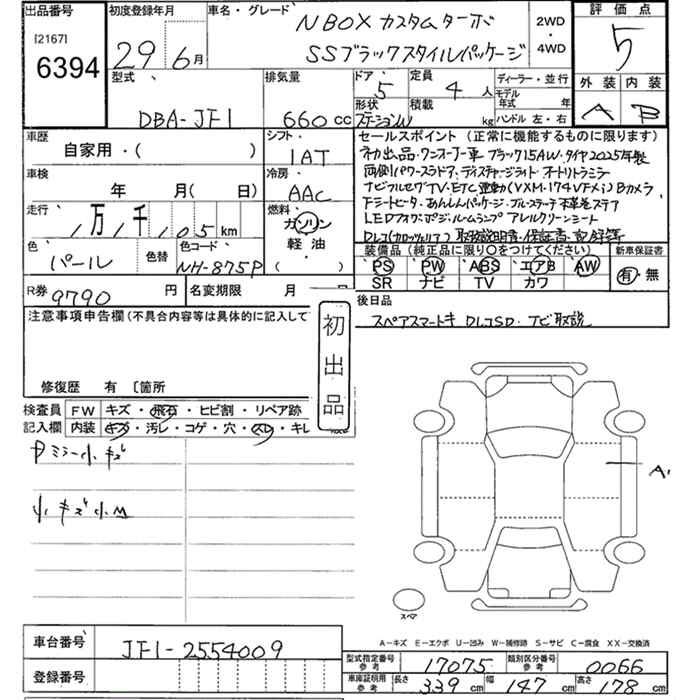 出品番号
[2167]
6394
初度登録年月
29年6月
車名・グレード
N BOX カスタムターボ
SSブラックスタイルパッケージ
2WD
・
4WD
評価点
5
外装 内装
A B
型式
DBA-JF1
排気量
660cc
ドア 5
定員 4人
形状 ステーションW
積載 kg
ディーラー・並行
モデル年式 年
ハンドル 左・右
車歴
自家用・( )
車検
年 月( 日)
走行
1万1千105km
色
パール
色替
色コード
NH-875P
シフト
1AT
冷房
AAC
燃料
ガソリン
軽油
( )
セールスポイント(正常に機能するものに限ります)
初出品・ワンオーナー車 ブラック15AW・タイヤ2025年製
両側パワースラドア・ディスチャージライト オートリトラミラー
ナビフルセグTV・ETC 運動(VXM-174VFXi)Bカメラ
Fシートヒータ・あんしんパッケージ・クルーズ
LEDフォグ ルームランプ アレルクリーンシート
Dレコ(カロッツェリア)取扱説明書・保証書・記録簿
装備品(純正品に限り○をつけてください)
PS PW ABS エアB AW
SR ナビ TV カワ
新車保証書
有・無
R券 9790円
名変期限 月
後日品
スペアスマートキー DレコSD・ナビ取説
注意事項申告欄(不具合内容等は具体的に記入して
初出品
修復歴 有 〔箇所
検査員
記入欄
FW キズ・飛石・ヒビ割・リペア跡
内装 キズ・汚レ・コゲ・穴・スレ・キレ
Pミラー小キズ
小キズ小M
A1
スペア
A−キズ E−エクボ U−凹み W−補修跡 S−サビ C−腐食 XX−交換済
車台番号
JF1-2554009
登録番号
型式指定番号 参考
17075
類別区分番号 参考
0066
車庫証明用 参考
長さ 339cm
幅 147cm
高さ 178cm